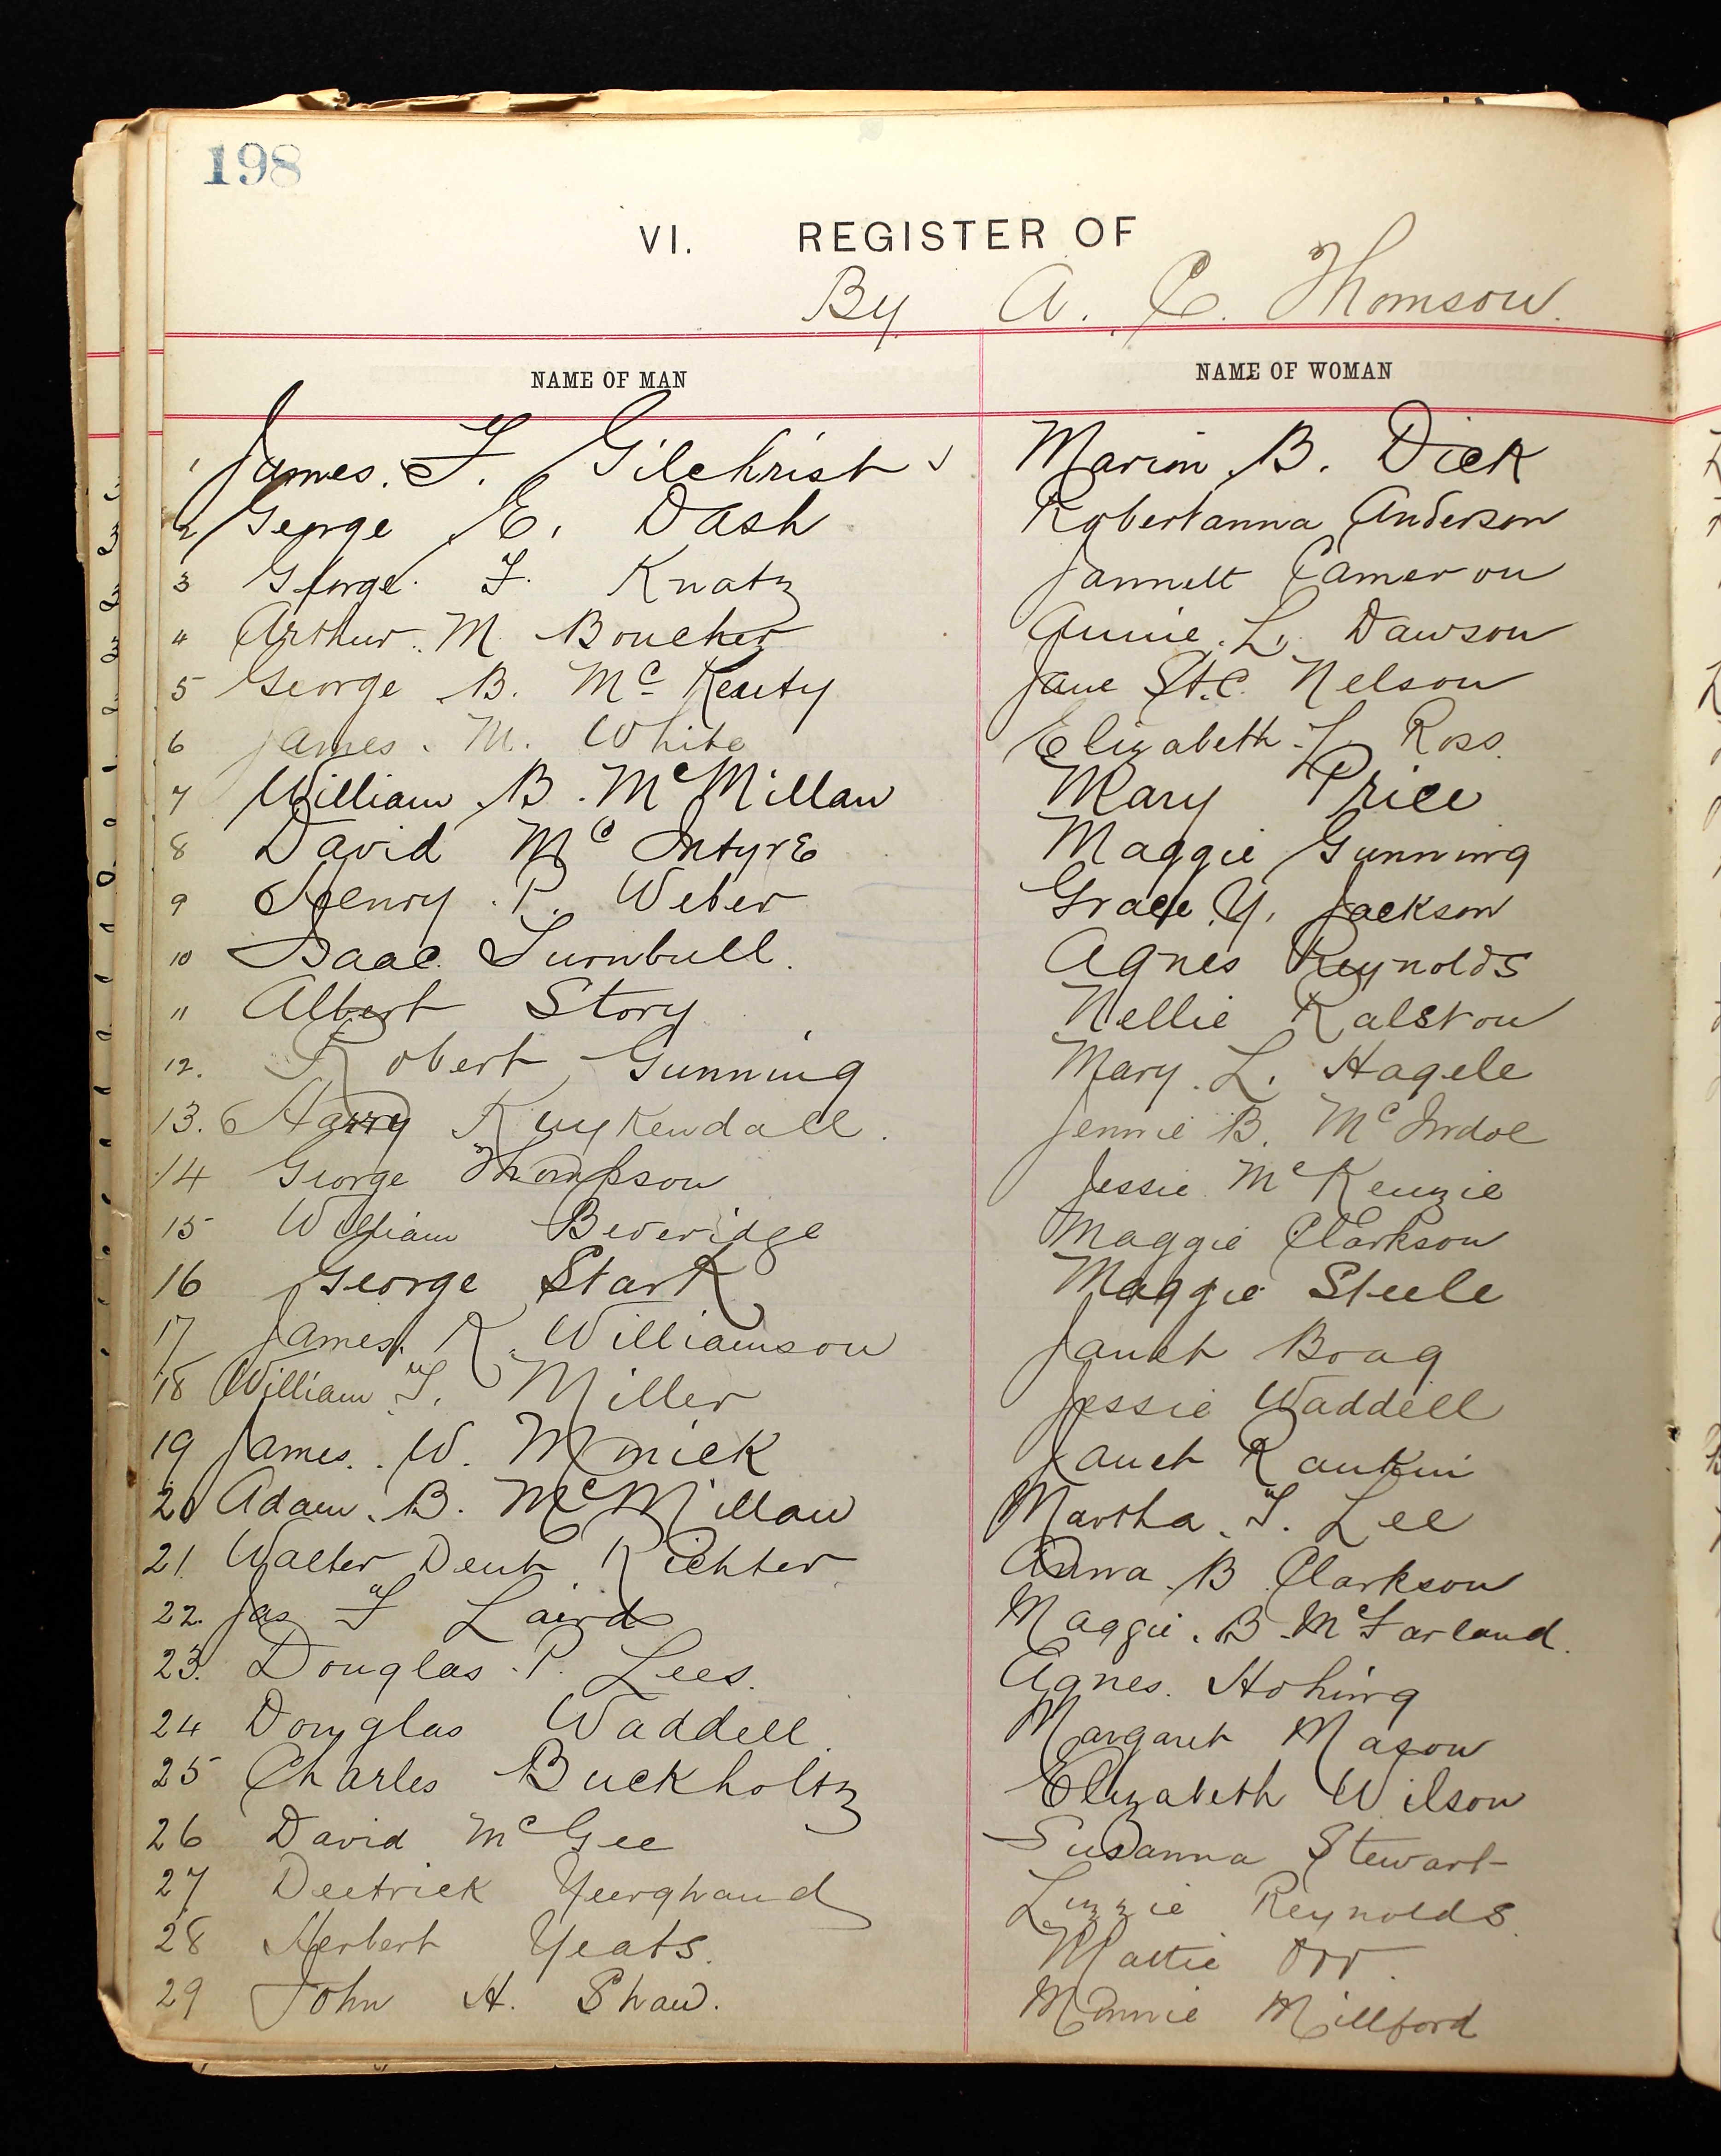 198
VI. REGISTER OF
By A. C. Thomson.
NAME OF MAN NAME OF WOMAN
1 James. F. Gilchrist Marion B. Dick
2 George E. Dash Robertanna Anderson
3 George F. Knatz Jannett Cameron
4 Arthur. M. Boucher Annie. L. Dawson
5 George B. Mc Kenty Jane St.C. Nelson
6 James. M. White Elizabeth. Ross.
7 William B. McMillan Mary Price
8 David Mc Intyre Maggie Gunning
9 Henry. P. Weber Grace Y. Jackson
10 Isaac Turnbull. Agnes Reynolds
11 Albert Story Nellie Ralston
12. Robert Gunning Mary. L. Hagele
13. Harry Kuykendall. Jennie B. Mc
14 George Thompson Jessie McKenzie
15 William Beveridge Maggie Clarkson
16 George Stark Maggie Steele
17 James. R. Williamson Janet Boag
18 William T. Miller Jessie Waddell
19 James. W. Minick Janet Rankin
20 Adam. B. McMillan Martha. T. Lee
21 Walter Dent Richter Anna B Clarkson
22. Jas F Laird Maggie. B. McFarland.
23. Douglas. P. Lees. Agnes. Hohing
24 Douglas Waddell. Margaret Mason
25 Charles Buckholtz Elizabeth Wilson
26 David McGee Susanna Stewart
27 Deetrick Yeerghand Lizzie Reynolds.
28 Herbert Yeats. Mattie Orr.
29 John H. Shaw. Minnie Millford